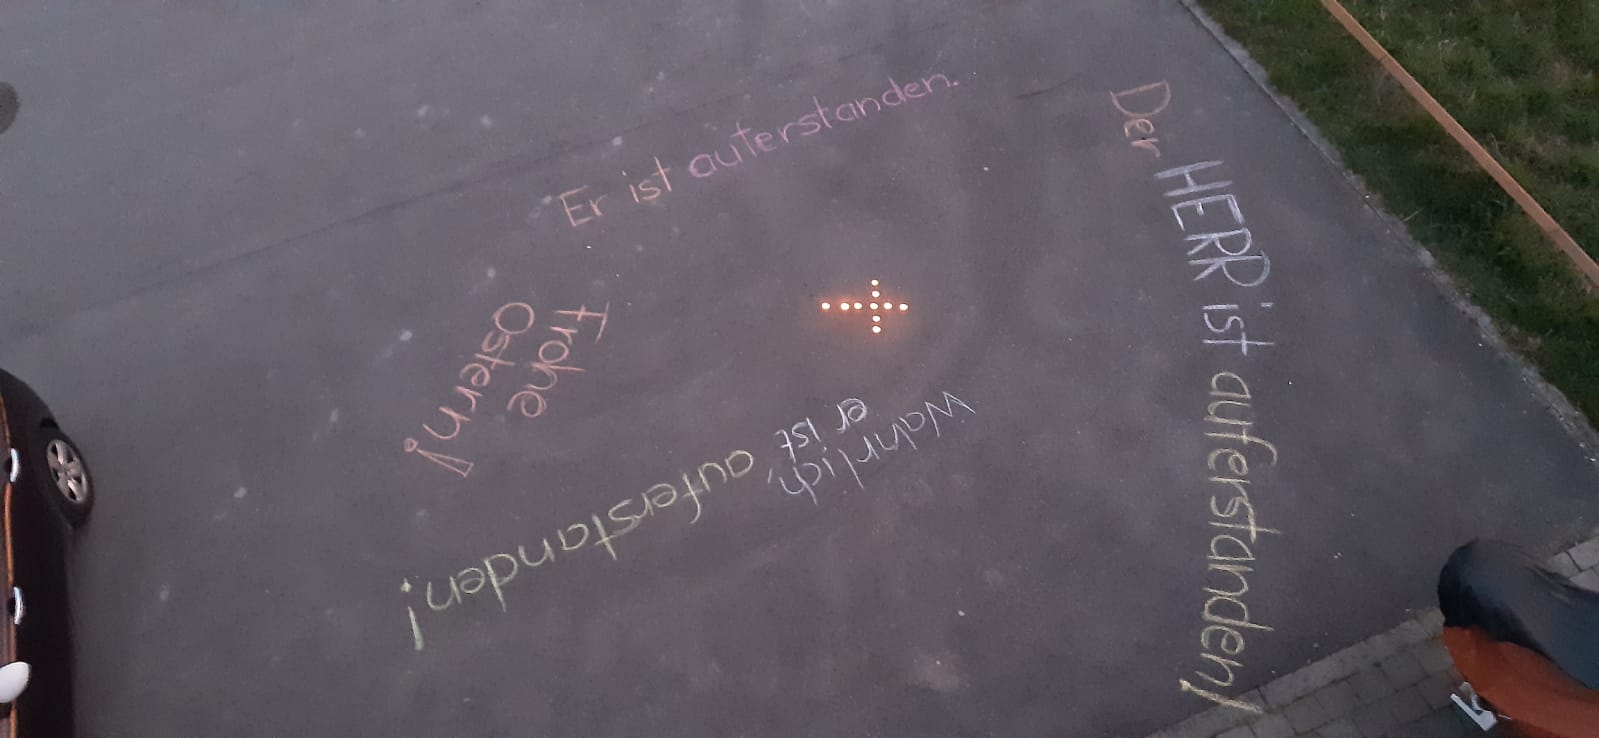 Er ist auferstanden.
Der HERR ist auferstanden!
Frohe
Ostern!
Wahrlich,
er ist
auferstanden!